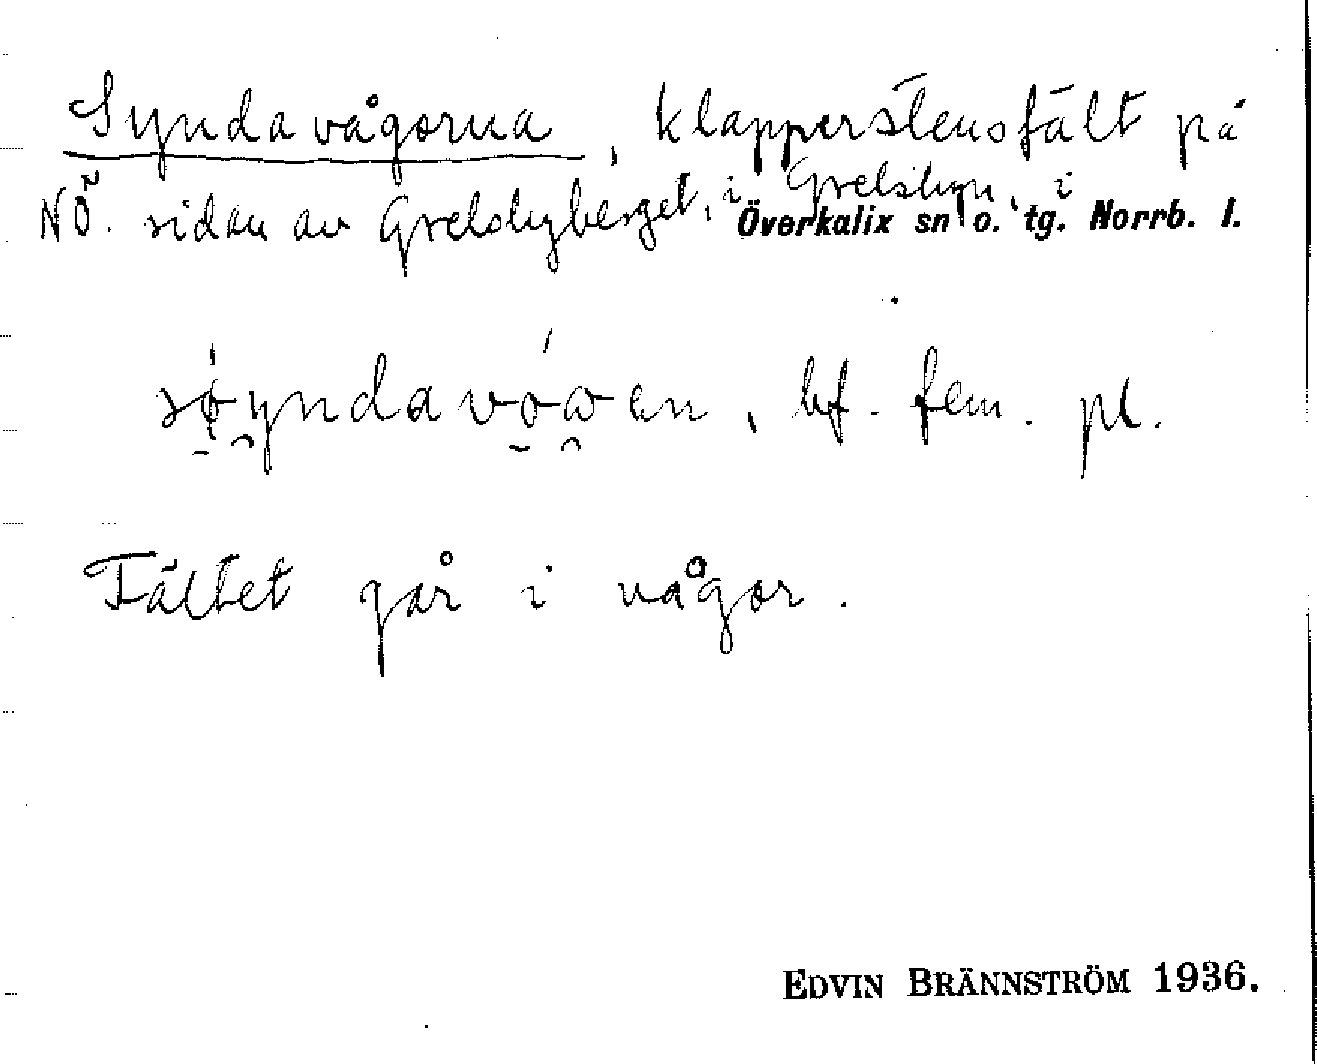 Syndavågorna, klapperstensfält på
NÖ. sidan av Grelsbyberget, i Grelsbyn, i
Överkalix sn o. tg. Norrb. l.
bf. fem. pl.
Fältet går i vågor.
EDVIN BRÄNNSTRÖM 1936.